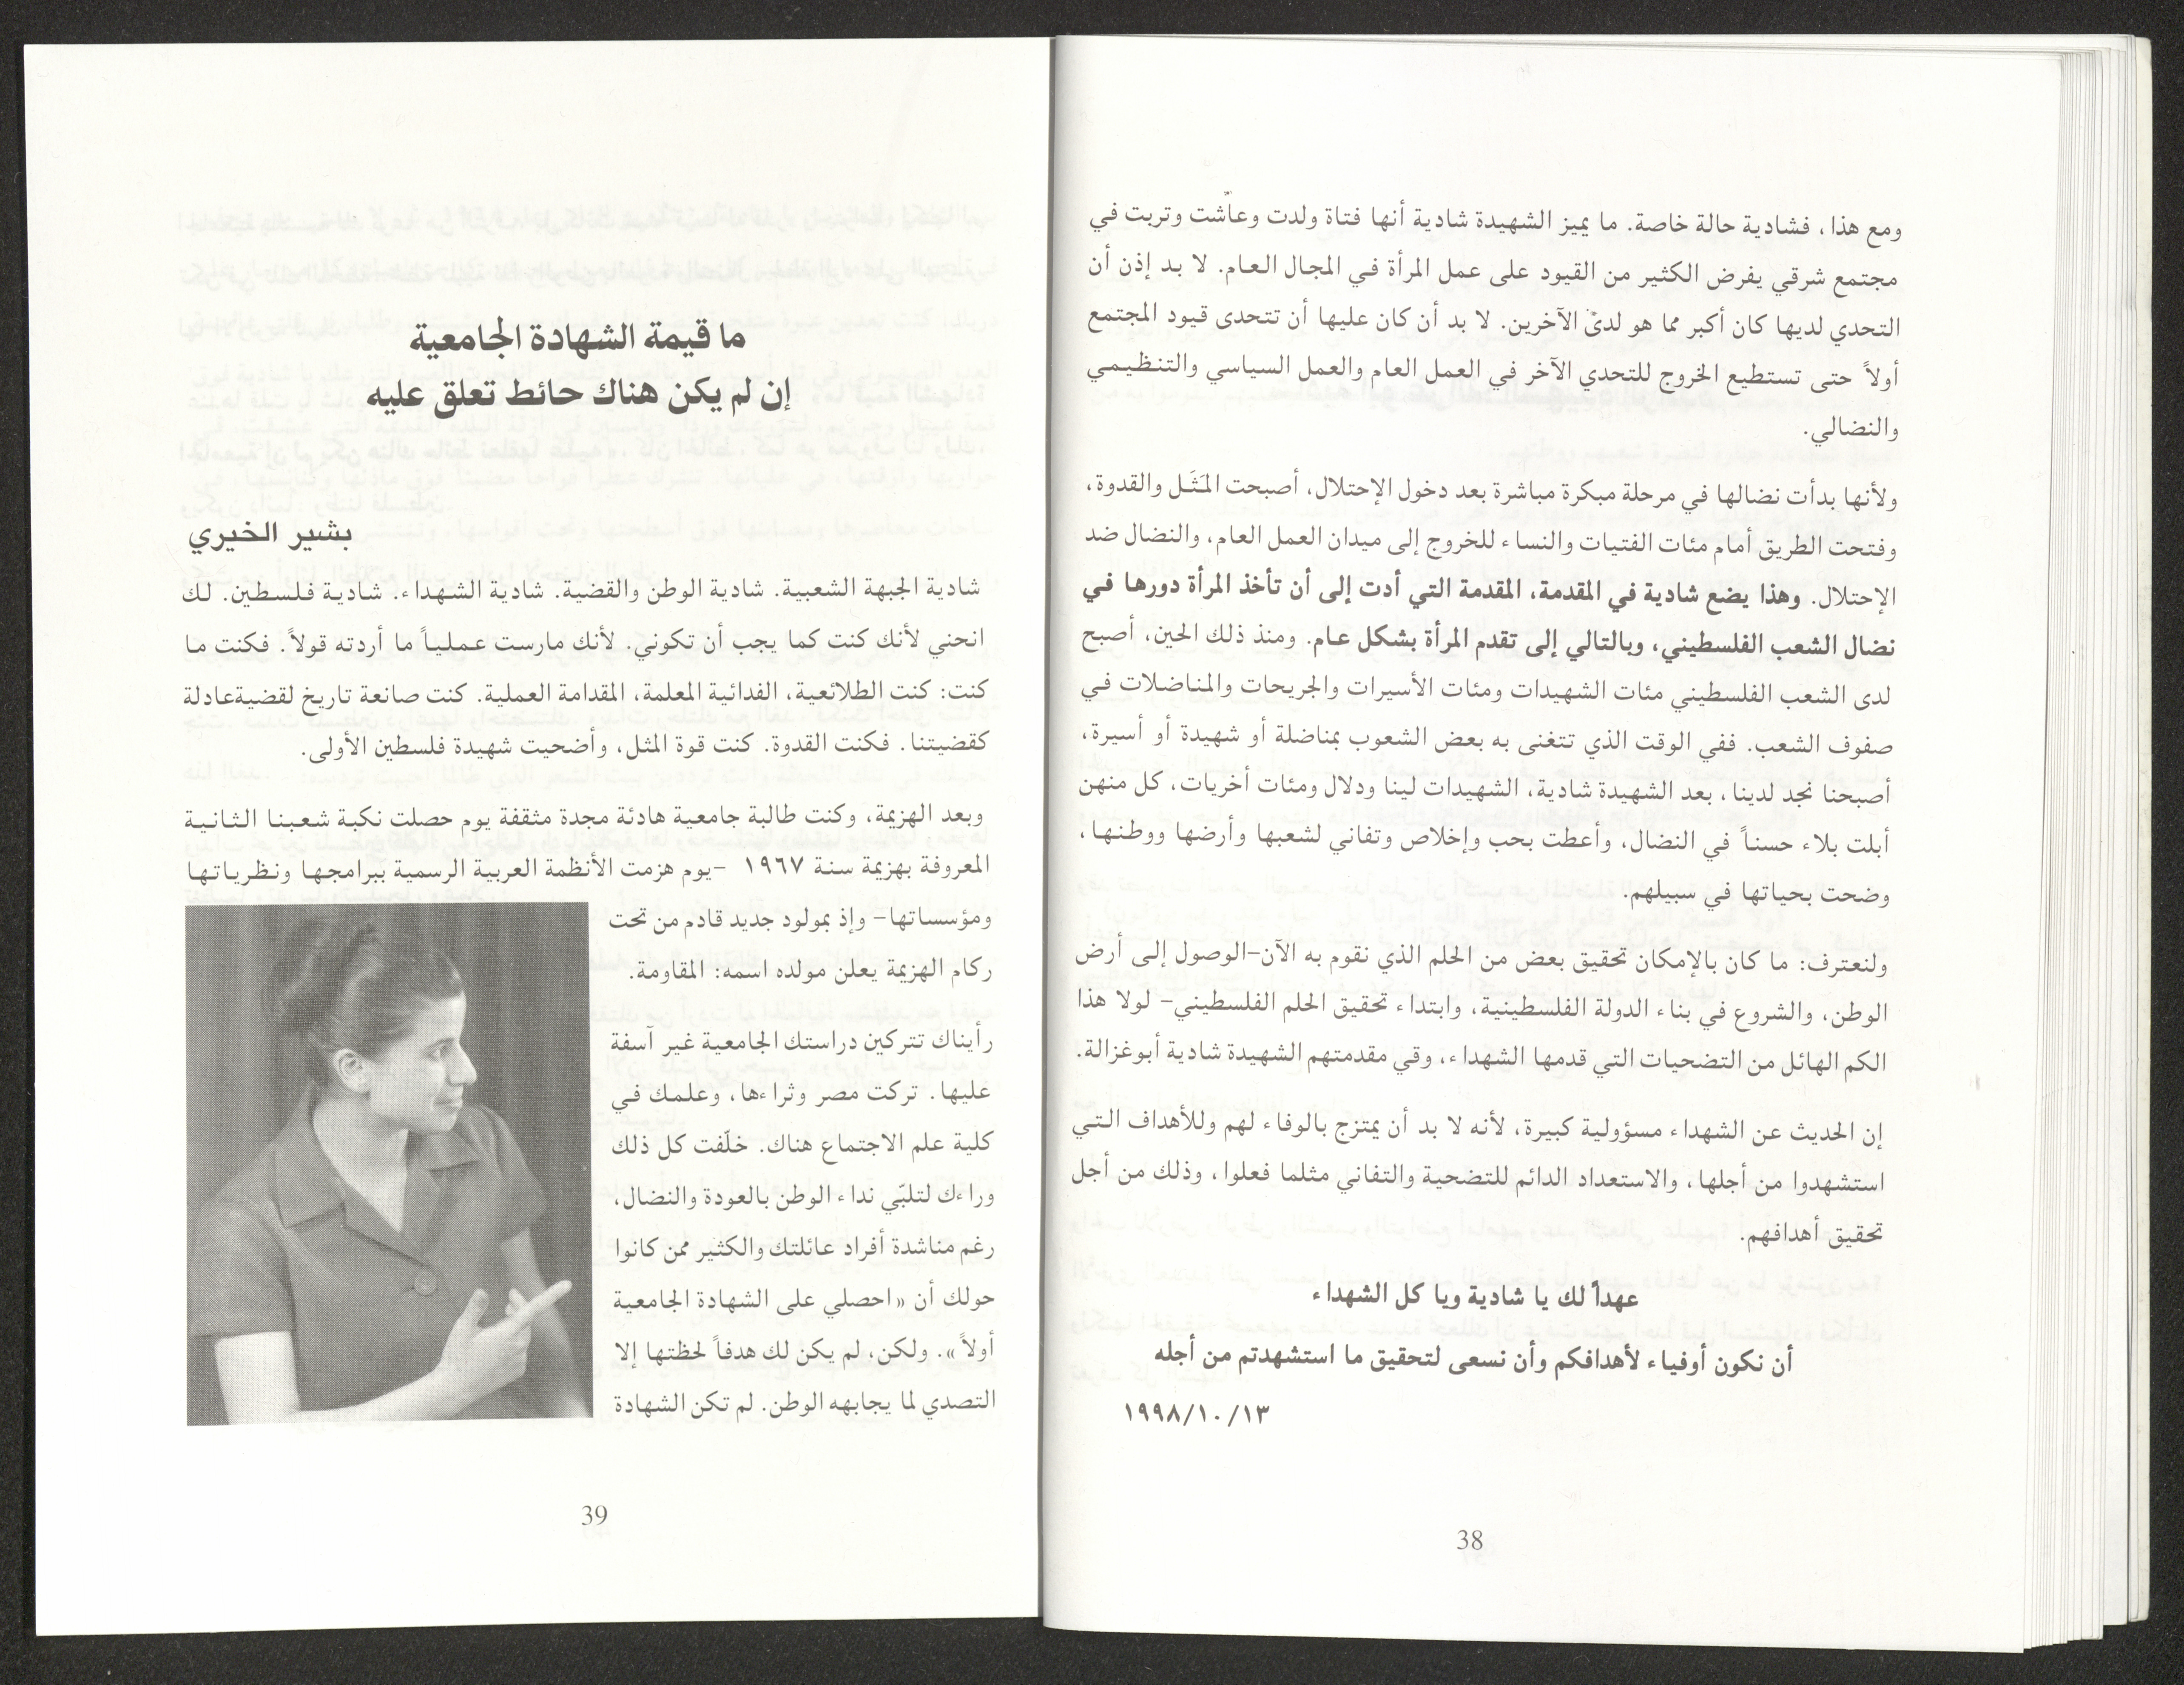 ومع هذا، فشادية حالة خاصة. ما يميز الشهيدة شادية أنها فتاة ولدت وعاشت وتربت في
مجتمع شرقي يفرض الكثير من القيود على عمل المرأة في المجال العام. لا بد إذن أن
التحدي لديها كان أكبر مما هو لدى الآخرين. لا بد أن كان عليها أن تتحدى قيود المجتمع
أولاً حتى تستطيع الخروج للتحدي الآخر في العمل العام والعمل السياسي والتنظيمي
والنضالي.
ولأنها بدأت نضالها في مرحلة مبكرة مباشرة بعد دخول الإحتلال، أصبحت المَثَل والقدوة،
وفتحت الطريق أمام مئات الفتيات والنساء للخروج إلى ميدان العمل العام، والنضال ضد
الإحتلال. وهذا يضع شادية في المقدمة، المقدمة التي أدت إلى أن تأخذ المرأة دورها في
نضال الشعب الفلسطيني، وبالتالي إلى تقدم المرأة بشكل عام. ومنذ ذلك الحين، أصبح
لدى الشعب الفلسطيني مئات الشهيدات ومئات الأسيرات والجريحات والمناضلات في
صفوف الشعب. ففي الوقت الذي تتغنى به بعض الشعوب بمناضلة أو شهيدة أو أسيرة،
أصبحنا نجد لدينا، بعد الشهيدة شادية، الشهيدات لينا ودلال ومئات أخريات، كل منهن
أبلت بلاء حسناً في النضال، وأعطت بحب وإخلاص وتفاني لشعبها وأرضها ووطنها،
وضحت بحياتها في سبيلهم.
ولنعترف: ما كان بالإمكان تحقيق بعض من الحلم الذي نقوم به الآن–الوصول إلى أرض
الوطن، والشروع في بناء الدولة الفلسطينية، وابتداء تحقيق الحلم الفلسطيني– لولا هذا
الكم الهائل من التضحيات التي قدمها الشهداء، وقي مقدمتهم الشهيدة شادية أبوغزالة.
إن الحديث عن الشهداء مسؤولية كبيرة، لأنه لا بد أن يمتزج بالوفاء لهم وللأهداف التي
استشهدوا من أجلها، والاستعداد الدائم للتضحية والتفاني مثلما فعلوا، وذلك من أجل
تحقيق أهدافهم.
عهداً لك يا شادية ويا كل الشهداء
أن نكون أوفياء لأهدافكم وأن نسعى لتحقيق ما استشهدتم من أجله
١٩٩٨/١٠/١٣
38
ما قيمة الشهادة الجامعية
إن لم يكن هناك حائط تعلق عليه
بشير الخيري
شادية الجبهة الشعبية. شادية الوطن والقضية. شادية الشهداء. شادية فلسطين. لك
انحني لأنك كنت كما يجب أن تكوني. لأنك مارست عملياً ما أردته قولاً. فكنت ما
كنت: كنت الطلائعية، الفدائية المعلمة، المقدامة العملية. كنت صانعة تاريخ لقضيةعادلة
كقضيتنا. فكنت القدوة. كنت قوة المثل، وأضحيت شهيدة فلسطين الأولى.
وبعد الهزيمة، وكنت طالبة جامعية هادئة مجدة مثقفة يوم حصلت نكبة شعبنا الثانية
المعروفة بهزيمة سنة ١٩٦٧ –يوم هزمت الأنظمة العربية الرسمية ببرامجها ونظرياتها
ومؤسساتها– وإذ بمولود جديد قادم من تحت
ركام الهزيمة يعلن مولده اسمه: المقاومة.
رأيناك تتركين دراستك الجامعية غير آسفة
عليها. تركت مصر وثراءها، وعلمك في
كلية علم الاجتماع هناك. خلّفت كل ذلك
وراءك لتلبّي نداء الوطن بالعودة والنضال،
رغم مناشدة أفراد عائلتك والكثير ممن كانوا
حولك أن «احصلي على الشهادة الجامعية
أولاً». ولكن، لم يكن لك هدفاً لحظتها إلا
التصدي لما يجابهه الوطن. لم تكن الشهادة
39